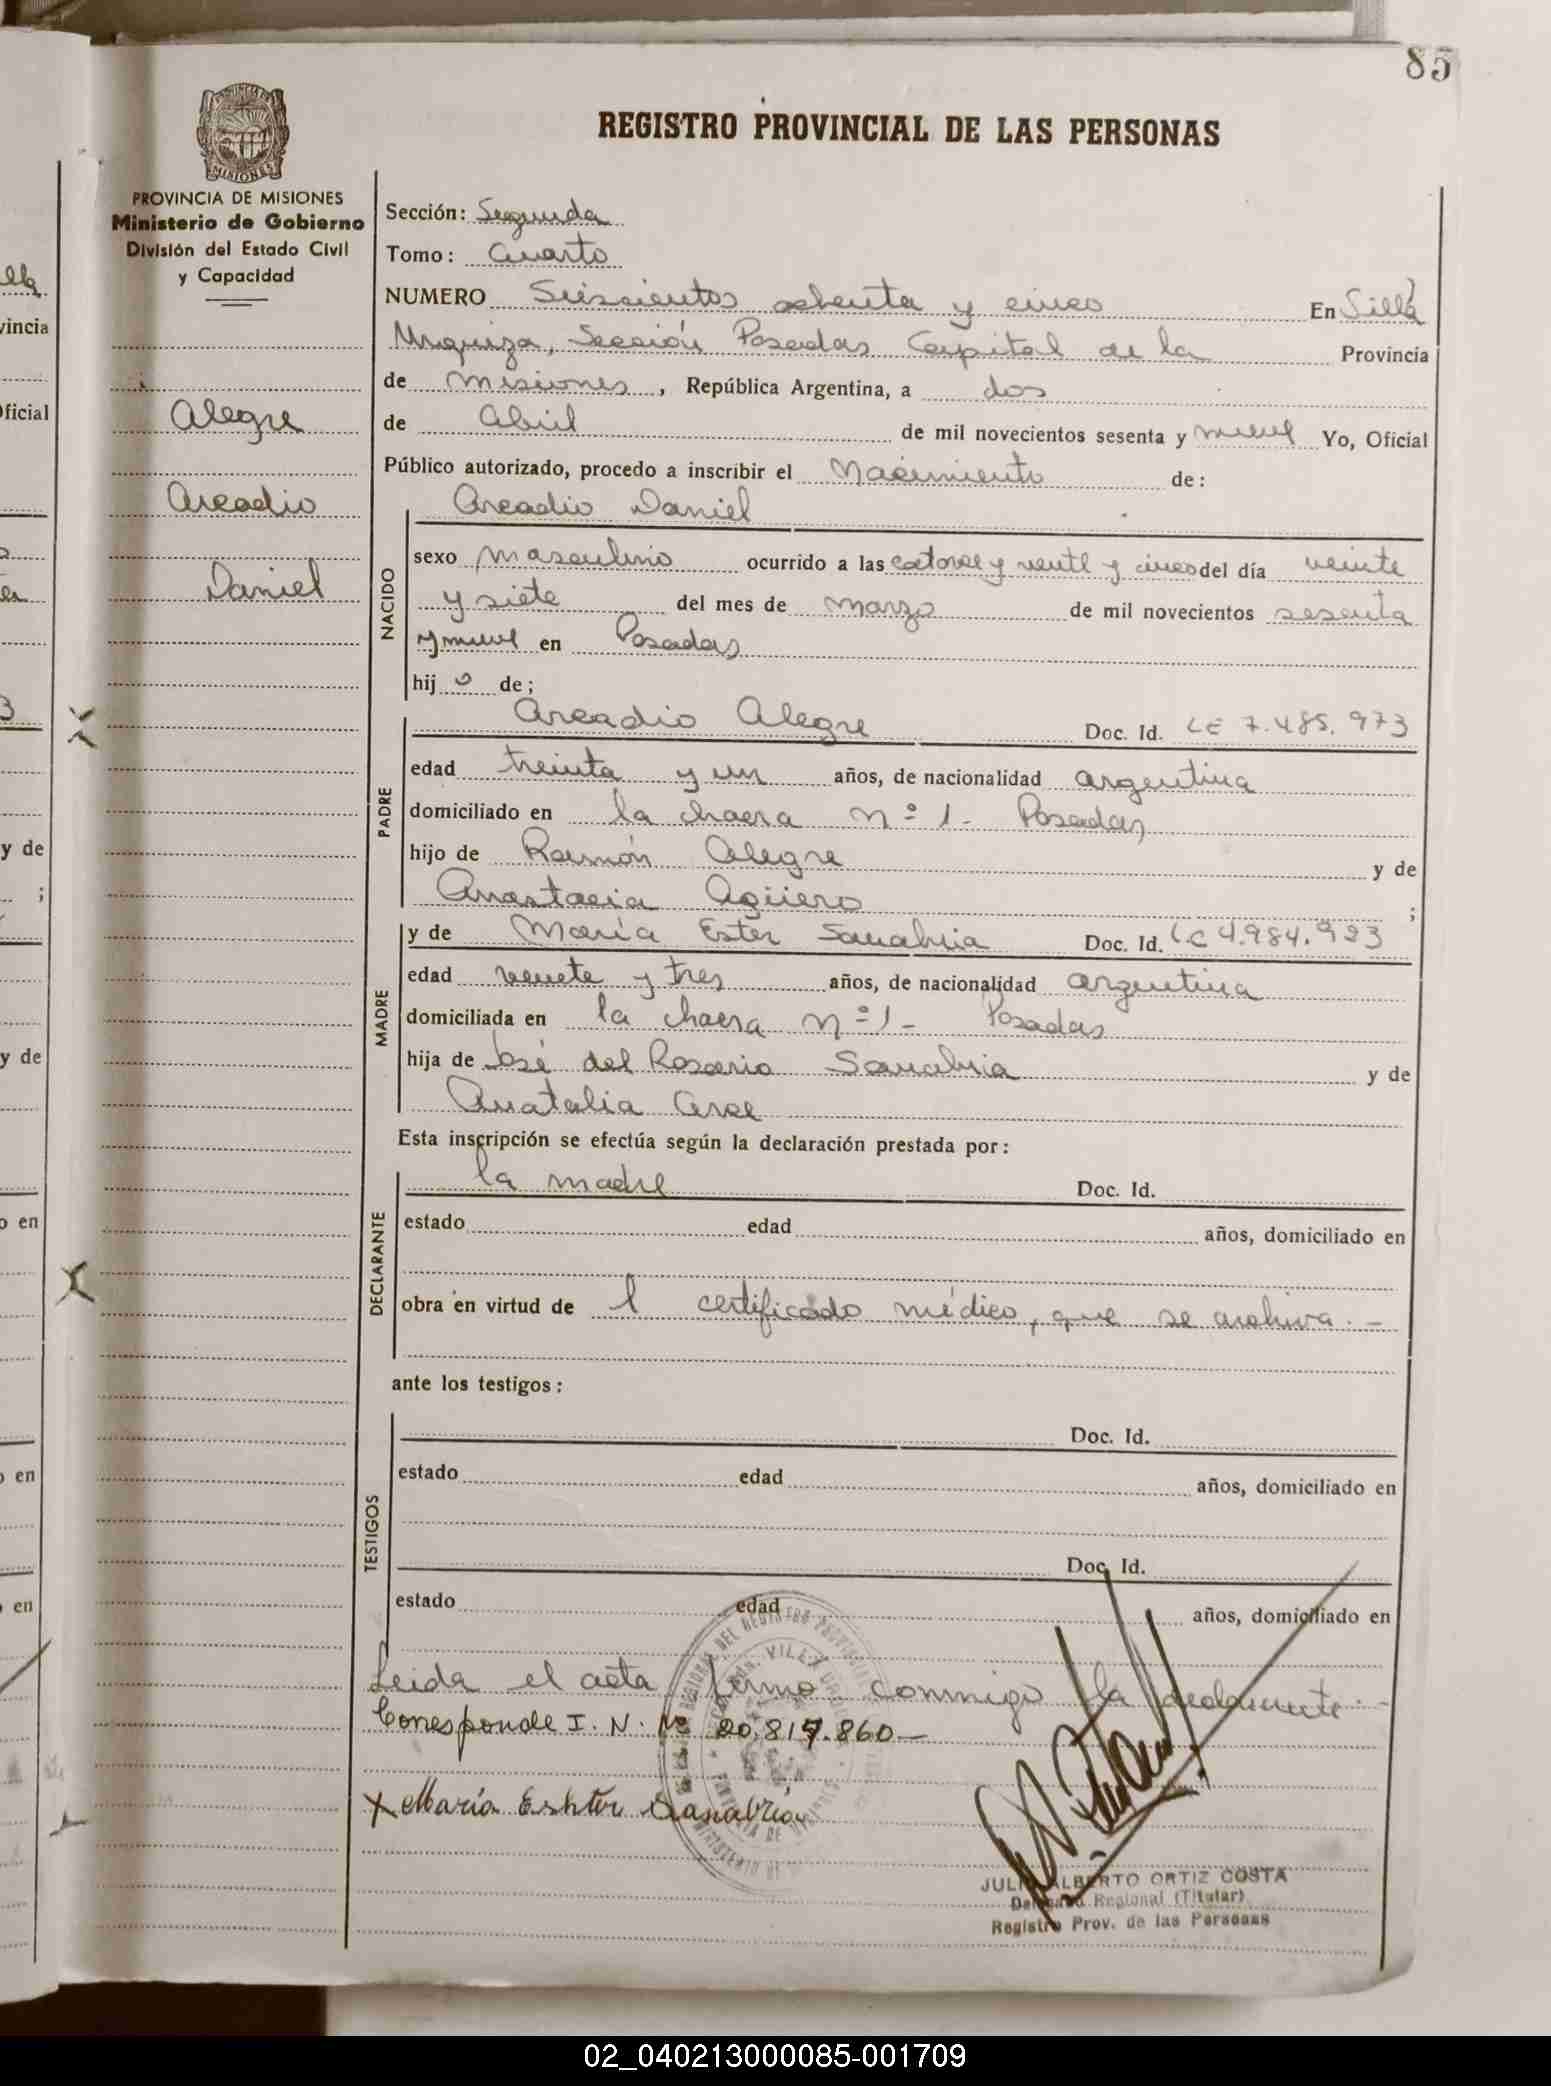 85
REGISTRO PROVINCIAL DE LAS PERSONAS
PROVINCIA DE MISIONES
Ministerio de Gobierno
División del Estado Civil
y Capacidad
Alegre
Arcadio
Daniel
Sección: Segunda
Tomo: Cuarto
NUMERO Seiscientos ochenta y cinco En Villa
Urquiza, Sección Posadas Capital de la Provincia
de Misiones, República Argentina, a dos
de Abril de mil novecientos sesenta y nueve Yo, Oficial
Público autorizado, procedo a inscribir el Nacimiento de:
Arcadio Daniel
NACIDO
sexo masculino ocurrido a las catorce y veinte y cinco del día veinte
y siete del mes de marzo de mil novecientos sesenta
y nueve en Posadas
hijo de;
Arcadio Alegre Doc. Id. LE 7.485.973
PADRE
edad treinta y un años, de nacionalidad argentina
domiciliado en la chacra nº 1 - Posadas
hijo de Ramón Alegre y de
Anastacia Agüero ;
y de María Ester Sanabria Doc. Id. LC 4.984.923
MADRE
edad veinte y tres años, de nacionalidad argentina
domiciliada en la chacra nº 1 - Posadas
hija de José del Rosario Sanabria y de
Anatalia Arce
Esta inscripción se efectúa según la declaración prestada por:
la madre Doc. Id.
DECLARANTE
estado edad años, domiciliado en
obra en virtud de l certificado médico, que se archiva. -
ante los testigos:
Doc. Id.
estado edad años, domiciliado en
TESTIGOS
Doc. Id.
estado edad años, domiciliado en
Leida el acta firma conmigo la declarante. -
Corresponde I. N. Nº 20.817.860 -
x María Eshter Sanabria
JULIO ALBERTO ORTIZ COSTA
Delegado Regional (Titular)
Registro Prov. de las Personas
02_040213000085-001709